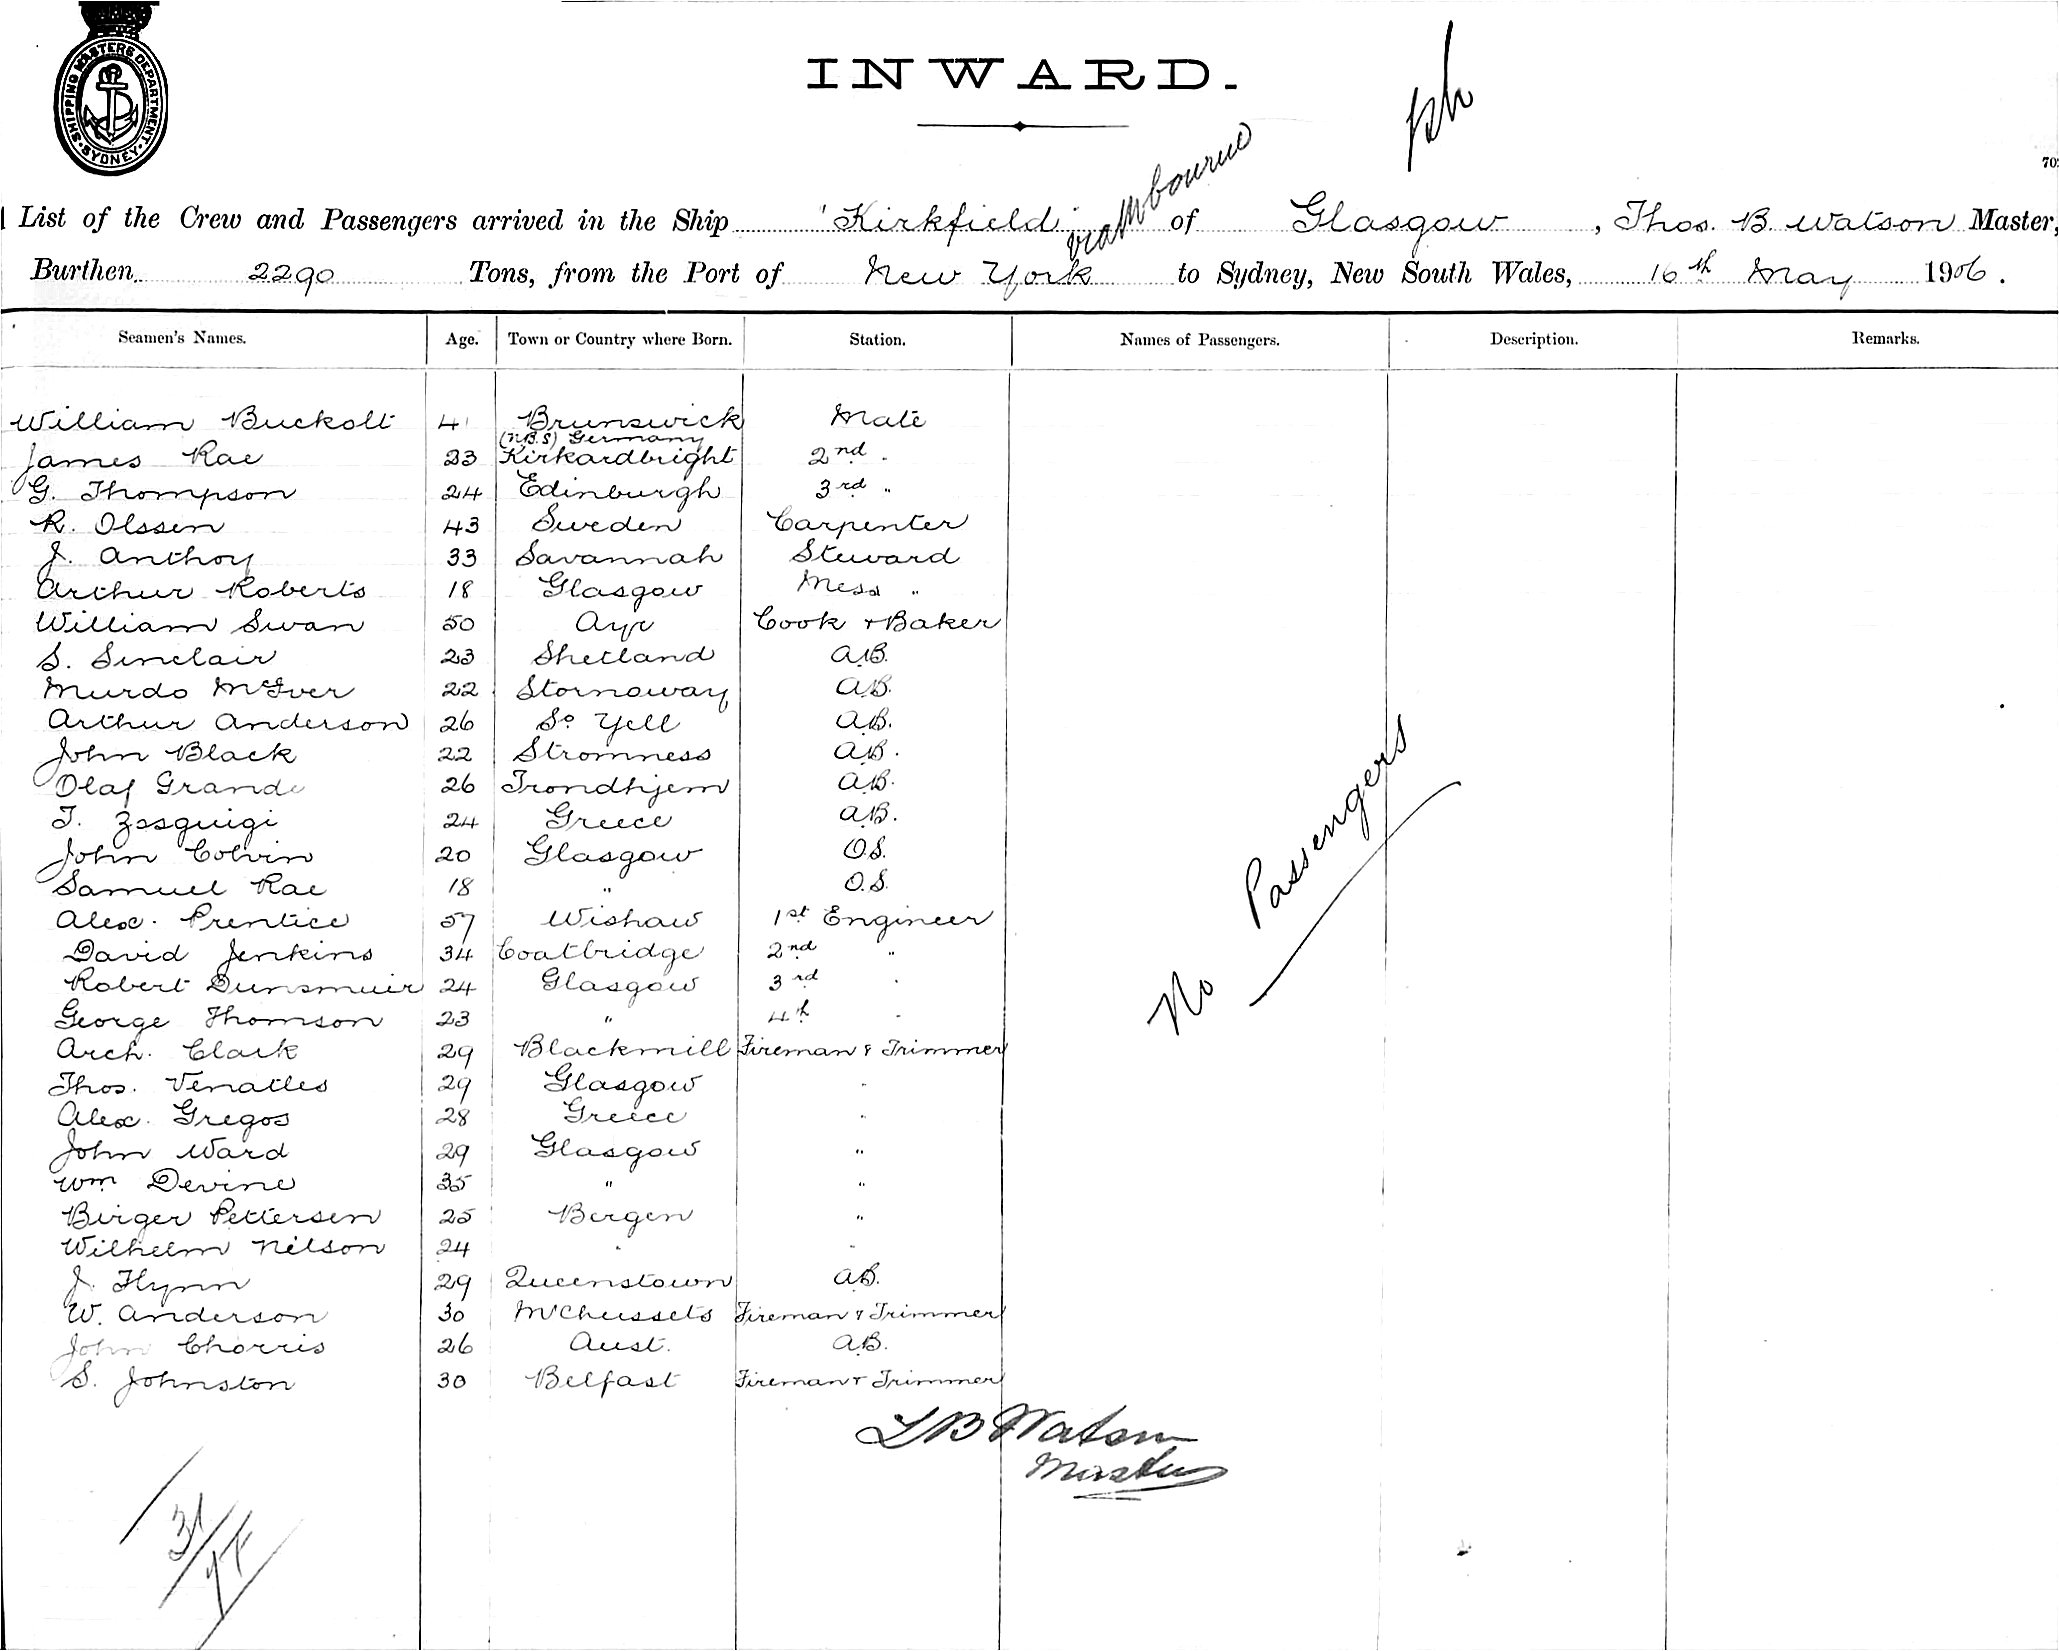 SHIPPING MASTERS DEPARTMENT · SYDNEY ·
INWARD.
via Melbourne
List of the Crew and Passengers arrived in the Ship "Kirkfield" of Glasgow, Thos. B. Watson Master,
Burthen 2290 Tons, from the Port of New York to Sydney, New South Wales, 16th May 1906.
Seamen's Names. Age. Town or Country where Born. Station. Names of Passengers. Description. Remarks.
William Buckolt 41 Brunswick Mate
(N.B.S) Germany
James Rae 23 Kirkardbright 2nd "
G. Thompson 24 Edinburgh 3rd "
R. Olssen 43 Sweden Carpenter
J. Anthoy 33 Savannah Steward
Arthur Roberts 18 Glasgow Mess "
William Swan 50 Ayr Cook + Baker
S. Sinclair 23 Shetland A.B.
Murdo McIver 22 Stornoway A.B.
Arthur Anderson 26 So. Yell A.B.
John Black 22 Stromness A.B.
Olaf Grande 26 Trondhjem A.B.
T. Zosguigi 24 Greece A.B.
John Colvin 20 Glasgow O.S.
Samuel Rae 18 " O.S.
Alex. Prentice 57 Wishaw 1st Engineer
David Jenkins 34 Coatbridge 2nd "
Robert Dunsmuir 24 Glasgow 3rd "
George Thomson 23 " 4th "
Arch. Clark 29 Blackmill Fireman & Trimmer
Thos. Venables 29 Glasgow "
Alex. Gregos 28 Greece "
John Ward 29 Glasgow "
Wm Devine 35 " "
Birger Pettersen 25 Bergen "
Wilhelm Nilson 24 " "
J. Flynn 29 Queenstown A.B.
W. Anderson 30 McChussets Fireman & Trimmer
John Chorris 26 Aust. A.B.
S. Johnston 30 Belfast Fireman + Trimmer
No Passengers
T B Watson
Master
31